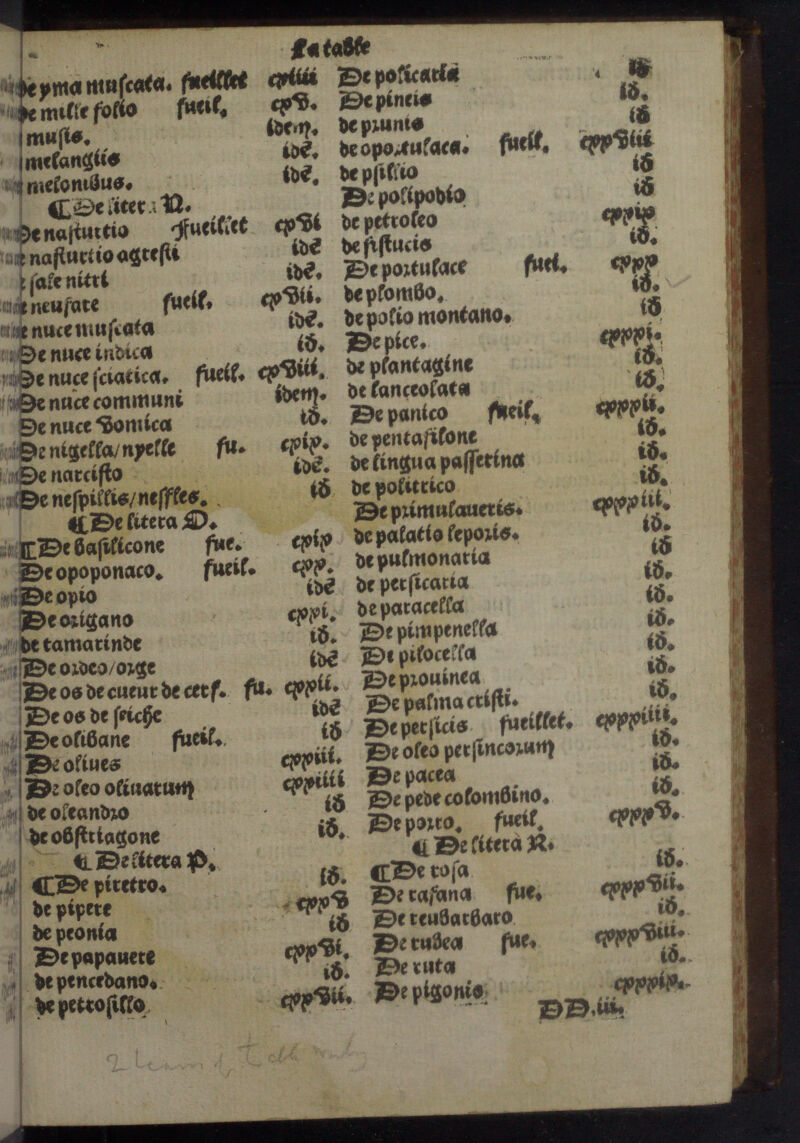 La table
De yma muscata. fueillet cxiiii
De mille folio fueil. cxv.
musis. idem.
melangiis idē.
melonibus. idē.
¶ De liter. N.
De nasturtio Fueillet cxvi
nasturtio agresti idē
sale nitri idē.
neufare fueil. cxvii.
nuce muscata idē.
De nuce indica id.
De nuce sciatica. fueil. cxviii.
De nuce communi idem.
De nuce vomica id.
De nigella/nyelle fu. cxix.
De narcisso idē.
De nespillis/neffles. id
¶ De litera O.
¶ De basilicone fue. cxix
De opoponaco. fueil. cxx.
De opio idē
De origano cxxi.
de tamarinde id.
De ordeo/orge idē
De os de cueur de cerf. fu. cxxii.
De os de seiche idē
De olibane fueil. id
De olives cxxiii.
De oleo olivatum cxxiiii
de oleandro id
de obstriagone id.
¶ De litera P.
¶ De piretro. id.
de pipere cxxv
de peonia id
De papavere cxxvi.
de peucedano. id.
de petrosillo cxxvii.
De policaria id
De pineis id.
de prunis id
de oportulaca. fueil. cxxviii
de psillio id
De polipodio id
de petroleo cxxix
de fistucis id.
De portulace fuei. cxxx
de plombo. id.
de polio montano. id
De pice. cxxxi.
de plantagine id.
de lanceolata id.
De panico fueil. cxxxii.
de pentafilone id.
de lingua passerina id.
de politrico id.
De primulaveris. cxxxiii.
de palatio leporis. id.
de pulmonaria id
de persicaria id.
de paracella id.
De pimpenella id.
De pilocella id.
De provinea id.
De palma cristi. id.
De persicis fueillet. cxxxiiii.
De oleo persincorum id.
De pacea id.
De pede colombino. id.
De porro. fueil. cxxxv.
¶ De litera R.
¶ De rosa id.
De rafana fue. cxxxvii.
De reubarbaro id.
De rubea fue. cxxxviii.
De ruta id.
De pigonis cxxxix.
DD.iii.
2 leaves of table